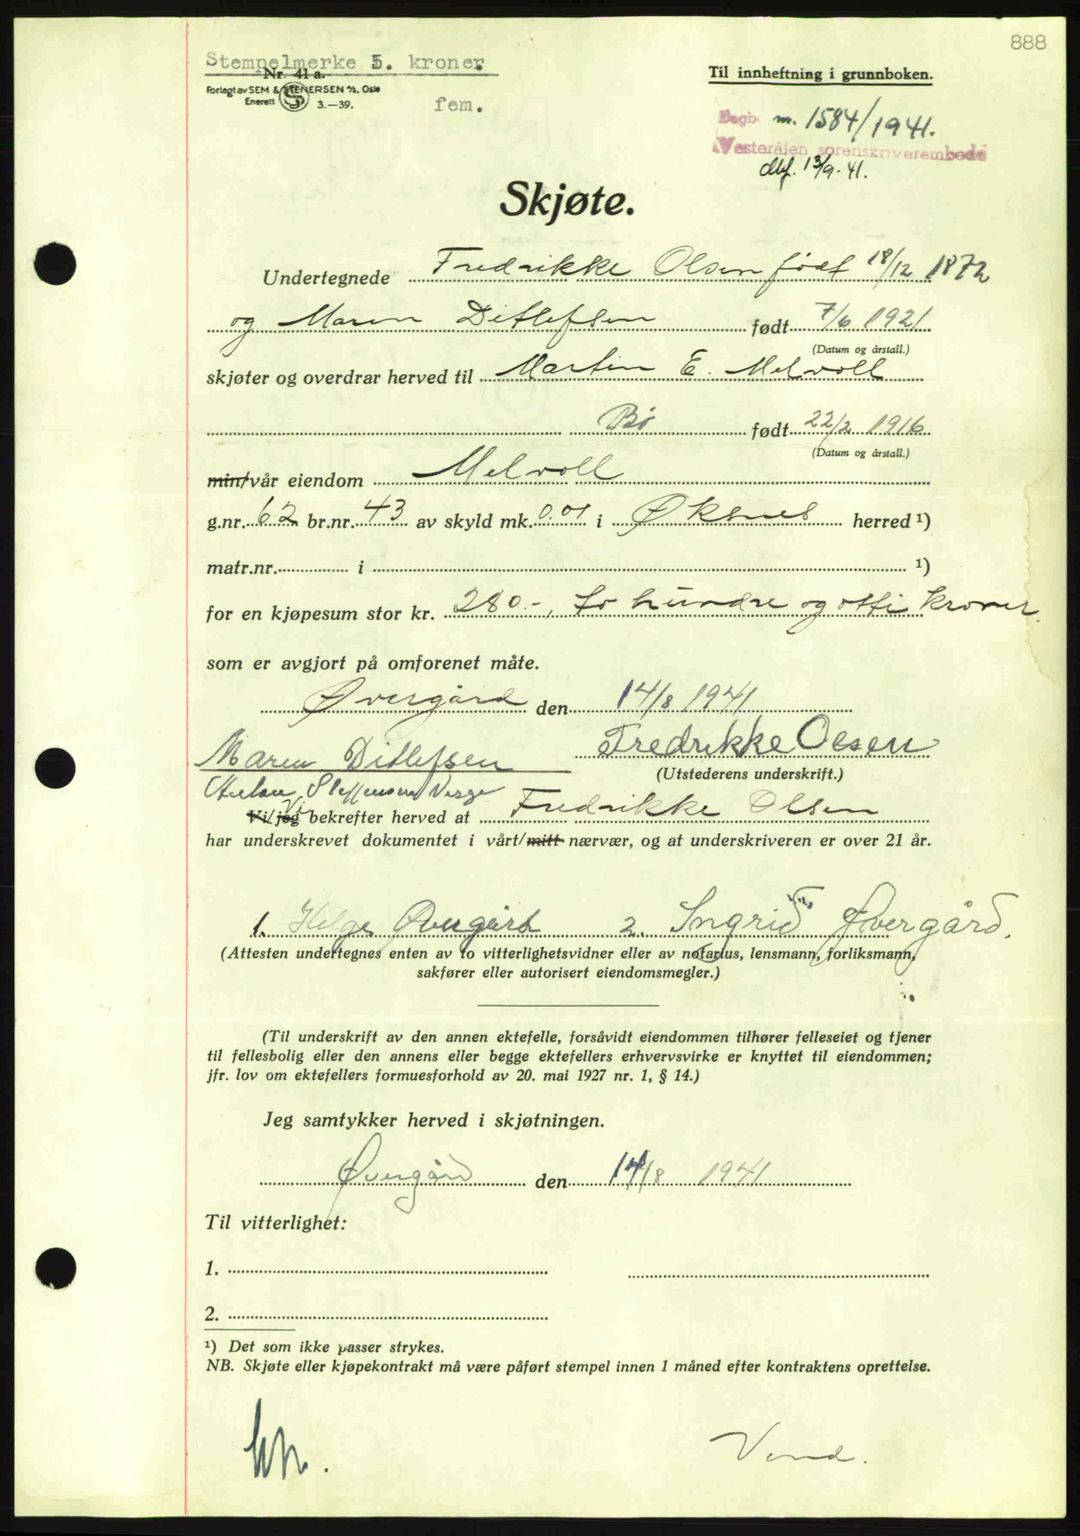 888
Stempelmerke 5. kroner
Nr. 41 a.
Forlagt av SEM & STENERSEN A/S, Oslo
Enerett 3.—39.
fem.
Til innheftning i grunnboken.
Dagb nr. 1584/1941.
Vesterålen sorenskriverembede
dbf. 13/9-41.
Skjøte.
Undertegnede Fredrikke Olsen født 18/12 1872
og Maren Ditlefsen født 7/6 1921
(Datum og årstall.)
skjøter og overdrar herved til Martin E. Melvoll
Bø født 22/2 1916
(Datum og årstall.)
min/vår eiendom Melvoll
g.nr. 62 br.nr. 43 av skyld mk. 0.01 i Øksnes herred ¹)
matr.nr. i ¹)
for en kjøpesum stor kr. 280.-, to hundre og otti kroner.
som er avgjort på omforenet måte.
Øvergård den 14/8 1941
Maren Ditlefsen Fredrikke Olsen
(Utstederens underskrift.)
Steffensen Verge
Vi/jeg Vi bekrefter herved at Fredrikke Olsen
har underskrevet dokumentet i vårt/mitt nærvær, og at underskriveren er over 21 år.
1. Helge Øvergård 2. Ingrid Øvergård.
(Attesten undertegnes enten av to vitterlighetsvidner eller av notarius, lensmann, forliksmann,
sakfører eller autorisert eiendomsmegler.)
(Til underskrift av den annen ektefelle, forsåvidt eiendommen tilhører felleseiet og tjener
til fellesbolig eller den annens eller begge ektefellers erhvervsvirke er knyttet til eiendommen;
jfr. lov om ektefellers formuesforhold av 20. mai 1927 nr. 1, § 14.)
Jeg samtykker herved i skjøtningen.
Øvergård den 14/8 1941
Til vitterlighet:
1.
2.
¹) Det som ikke passer strykes.
NB. Skjøte eller kjøpekontrakt må være påført stempel innen 1 måned efter kontraktens oprettelse.
Vend.